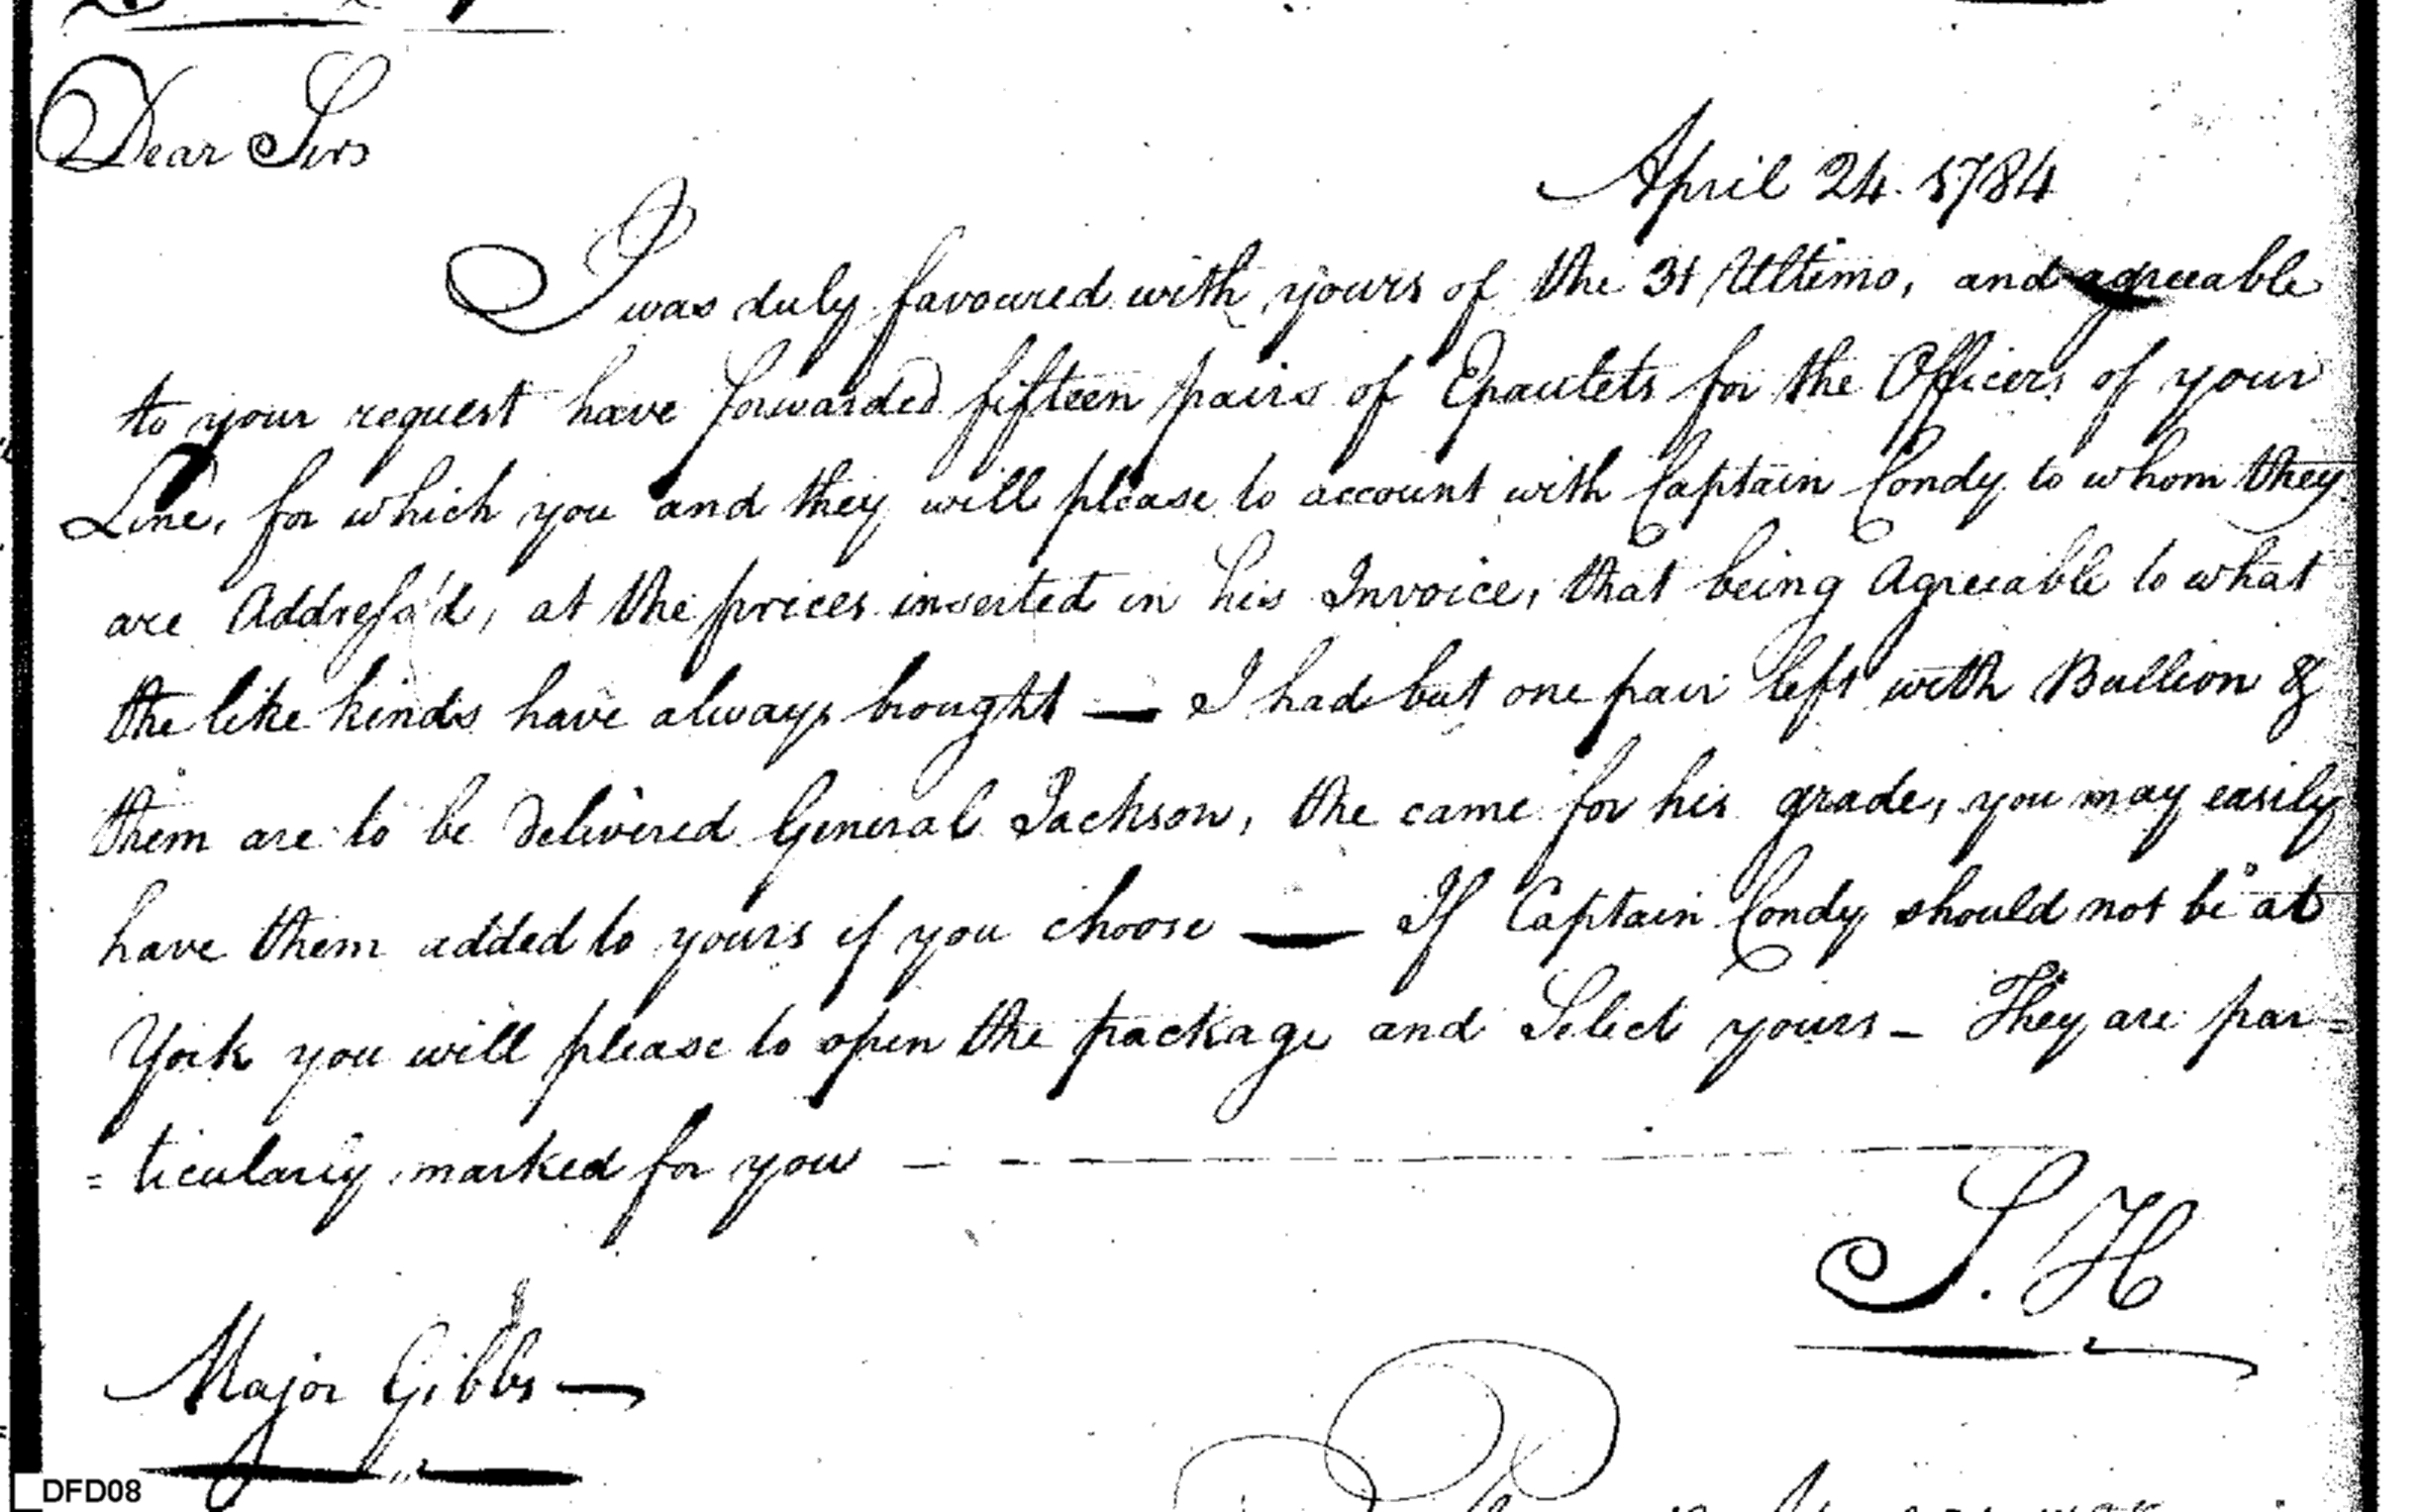 Dear Sirs
April 24. 1784
I was duly favoured with yours of the 31 Ultimo, and agreeable
to your request have forwarded fifteen pairs of Epaulets for the Officers of your
Line, for which you and they will please to account with Captain Condy to whom they
are Address'd, at the prices inserted in his Invoice, that being Agreeable to what
the like kinds have always brought — I had but one pair left with Bullion &
them are to be delivered General Jackson, the came for his grade, you may easily
have them added to yours if you choose — If Captain Condy should not be at
York you will please to open the package and Select yours – They are par=
=ticularly marked for you — – —
S. H
Major Gibbs —
DFD08